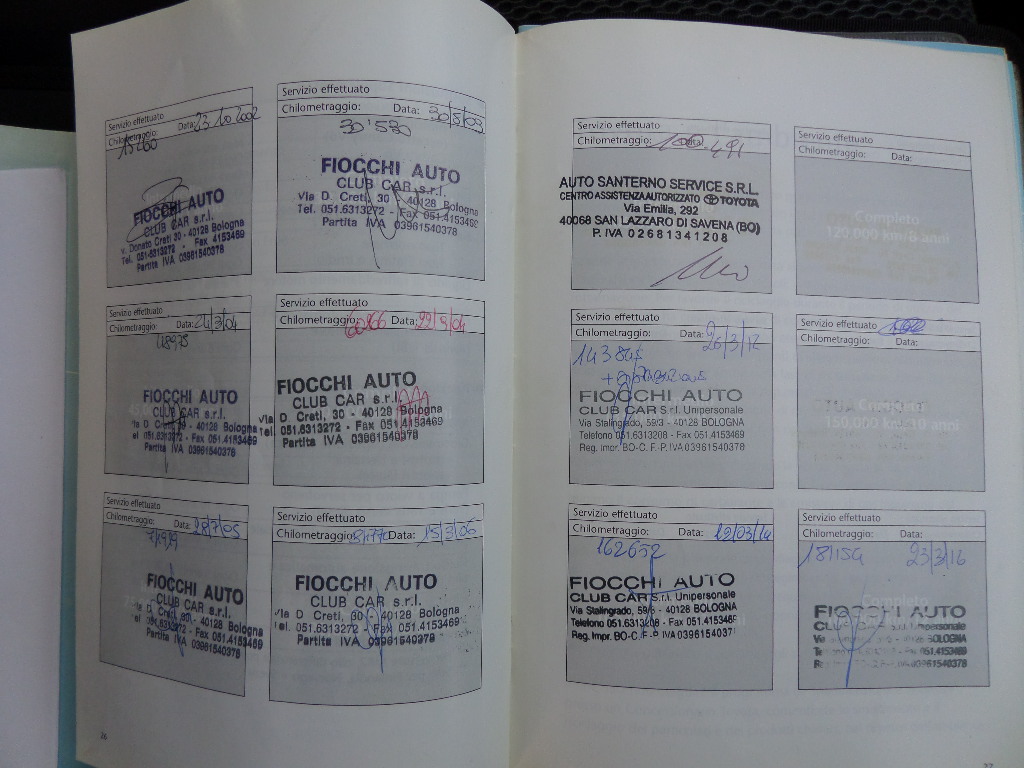 Servizio effettuato
Chilometraggio: Data: 23 10 2002
15260
FIOCCHI AUTO
CLUB CAR s.r.l.
v. Donato Creti 30 - 40128 Bologna
Tel. 051.6313272 - Fax 4153469
Partita IVA 03961540378
Servizio effettuato
Chilometraggio: Data: 30/5/03
30'530
FIOCCHI AUTO
CLUB CAR s.r.l.
Via D. Creti, 30 - 40128 Bologna
Tel. 051.6313272 - Fax 051.4153469
Partita IVA 03961540378
Servizio effettuato
Chilometraggio: Data: 24/3/04
48975
FIOCCHI AUTO
CLUB CAR s.r.l.
D. Creti, 30 - 40128 Bologna
el 051.6313272 - Fax 051.4153469
Partita IVA 03961540378
Servizio effettuato
Chilometraggio: 60266 Data: 22/9/04
FIOCCHI AUTO
CLUB CAR s.r.l.
Via D. Creti, 30 - 40128 Bologna
Tel. 051.6313272 - Fax 051.4153469
Partita IVA 03961540378
Servizio effettuato
Chilometraggio: Data: 28/7/05
FIOCCHI AUTO
CLUB CAR s.r.l.
D. Creti, 30 - 40128 Bologna
el 051.6313272 - Fax 051.4153469
Partita IVA 03961540378
Servizio effettuato
Chilometraggio: Data: 15/3/06
FIOCCHI AUTO
CLUB CAR s.r.l.
Via D. Creti, 30 - 40128 Bologna
Tel. 051.6313272 - Fax 051.4153469
Partita IVA 03961540378
26
Servizio effettuato
Chilometraggio: Data: 491
AUTO SANTERNO SERVICE S.R.L.
CENTRO ASSISTENZA AUTORIZZATO TOYOTA
Via Emilia, 292
40068 SAN LAZZARO DI SAVENA (BO)
P. IVA 02681341208
Servizio effettuato
Chilometraggio: Data:
Completo
120.000 km/8 anni
Servizio effettuato
Chilometraggio: Data: 26/3/12
FIOCCHI AUTO
CLUB CAR S.r.l. Unipersonale
Via Stalingrado, 59/3 - 40128 BOLOGNA
Telefono 051.6313208 - Fax 051.4153469
Reg. Impr. BO-C.F.-P.IVA 03961540378
Servizio effettuato
Chilometraggio: Data:
Completo
150.000 km/10 anni
Servizio effettuato
Chilometraggio: Data: 12/03/14
162632
FIOCCHI AUTO
CLUB CAR S.r.l. Unipersonale
Via Stalingrado, 59/3 - 40128 BOLOGNA
Telefono 051.6313208 - Fax 051.415346
Reg. Impr. BO-C.F.-P.IVA 0396154037
Servizio effettuato
Chilometraggio: Data:
181159 23/3/16
Completo
FIOCCHI AUTO
CLUB CAR S.r.l. Unipersonale
BOLOGNA
051.4153469
IVA 03961540378
27